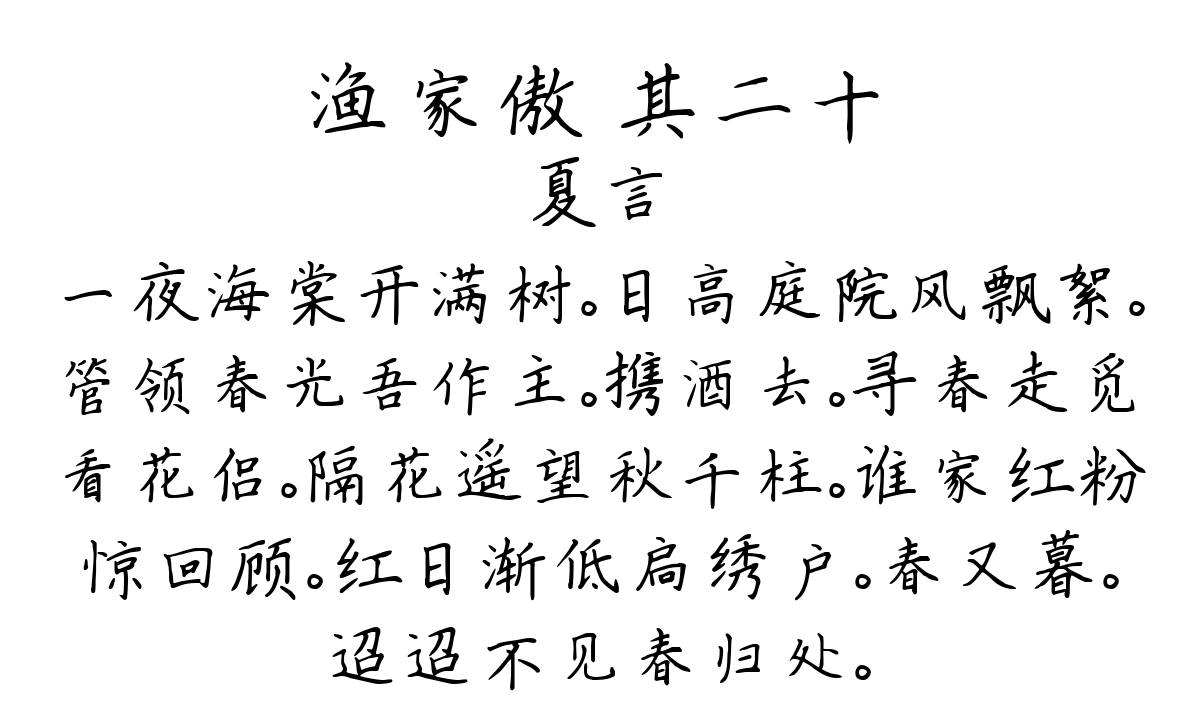 渔家傲 其二十
夏言
一夜海棠开满树。日高庭院风飘絮。
管领春光吾作主。携酒去。寻春走觅
看花侣。隔花遥望秋千柱。谁家红粉
惊回顾。红日渐低扃绣户。春又暮。
迢迢不见春归处。